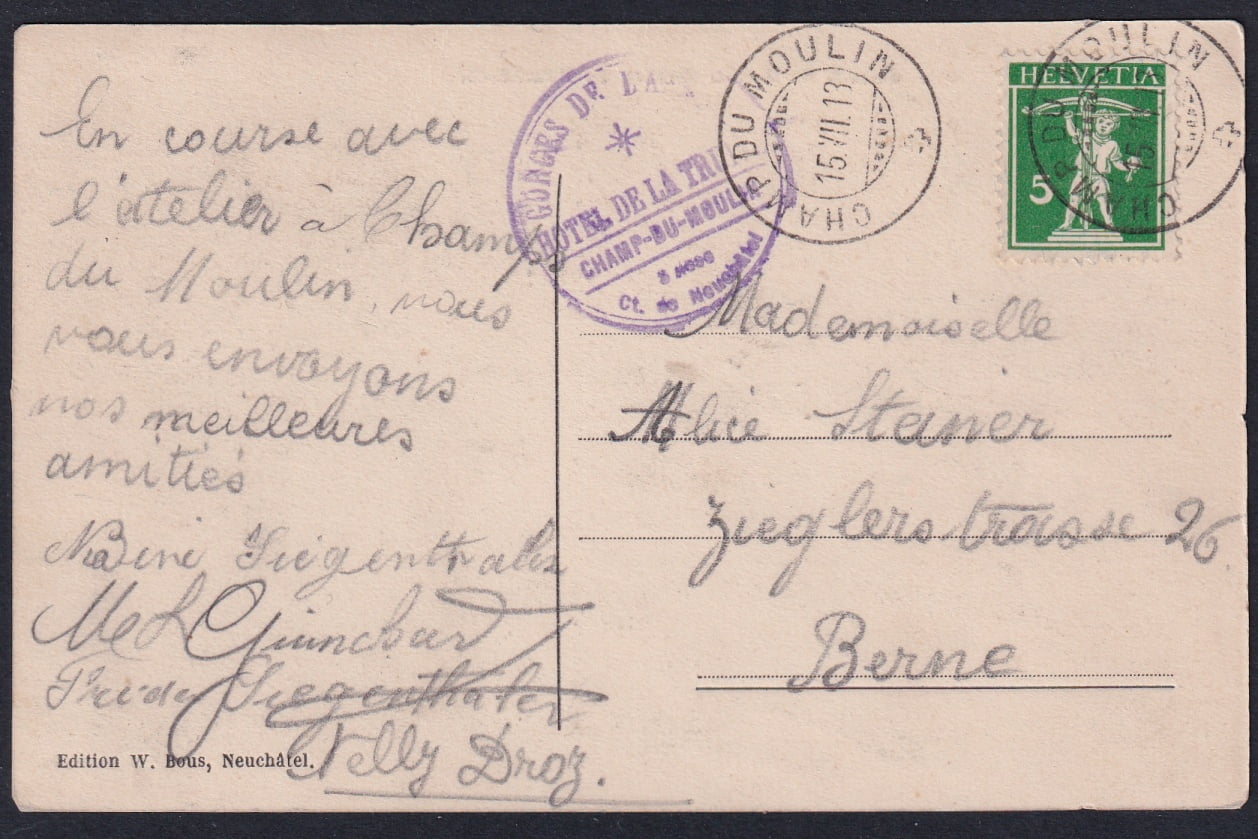 En course avec
l'atelier à Champs
du Moulin, nous
vous envoyons
nos meilleures
amitiés
Siegenthaler
Guinchard
Frieda Siegenthaler
Nelly Droz.
Edition W. Bous, Neuchâtel.
GORGES DE L'A
HOTEL DE LA TRU
CHAMP-DU-MOULIN
Ct. de Neuchâtel
CHAMP DU MOULIN
15.VII.13
HELVETIA
5
CHAMP DU MOULIN
15.VII
Mademoiselle
Alice Stainer
Zieglerstrasse 26
Berne